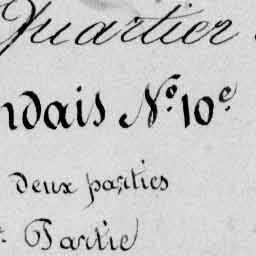 Quartier
ndais N.º 10e
Deux parties
Partie